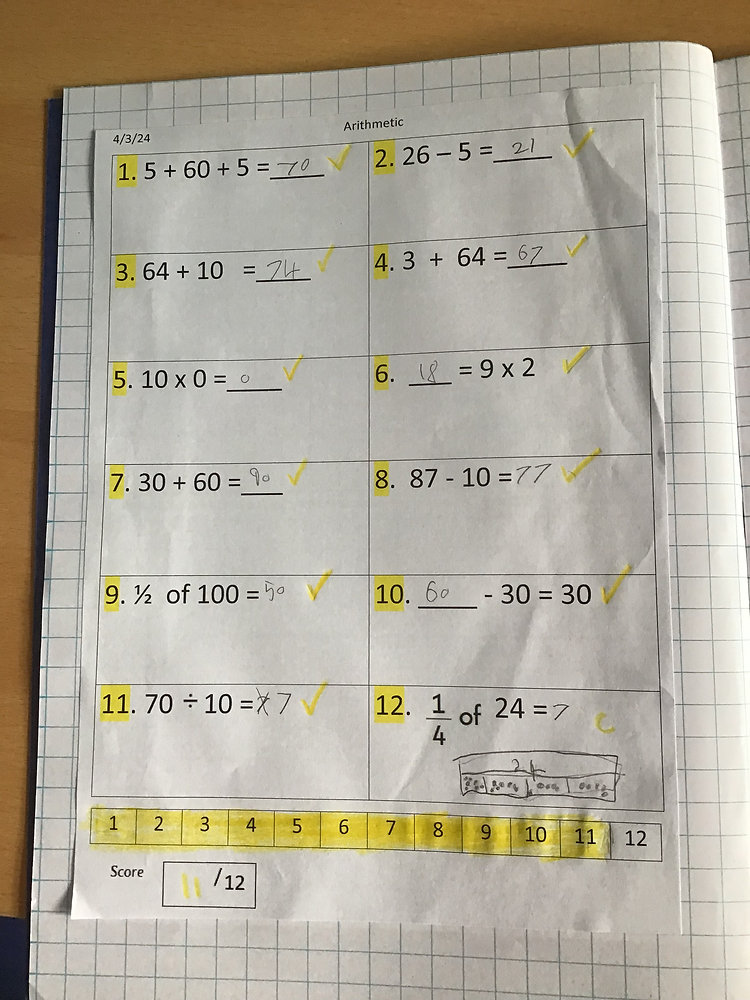 4/3/24
Arithmetic
1. 5 + 60 + 5 = 70
2. 26 – 5 = 21
3. 64 + 10 = 74
4. 3 + 64 = 67
5. 10 x 0 = 0
6. 18 = 9 x 2
7. 30 + 60 = 90
8. 87 - 10 = 77
9. ½ of 100 = 50
10. 60 - 30 = 30
11. 70 ÷ 10 = 7
12. 1/4 of 24 = 7
24
1 2 3 4 5 6 7 8 9 10 11 12
Score 11 /12